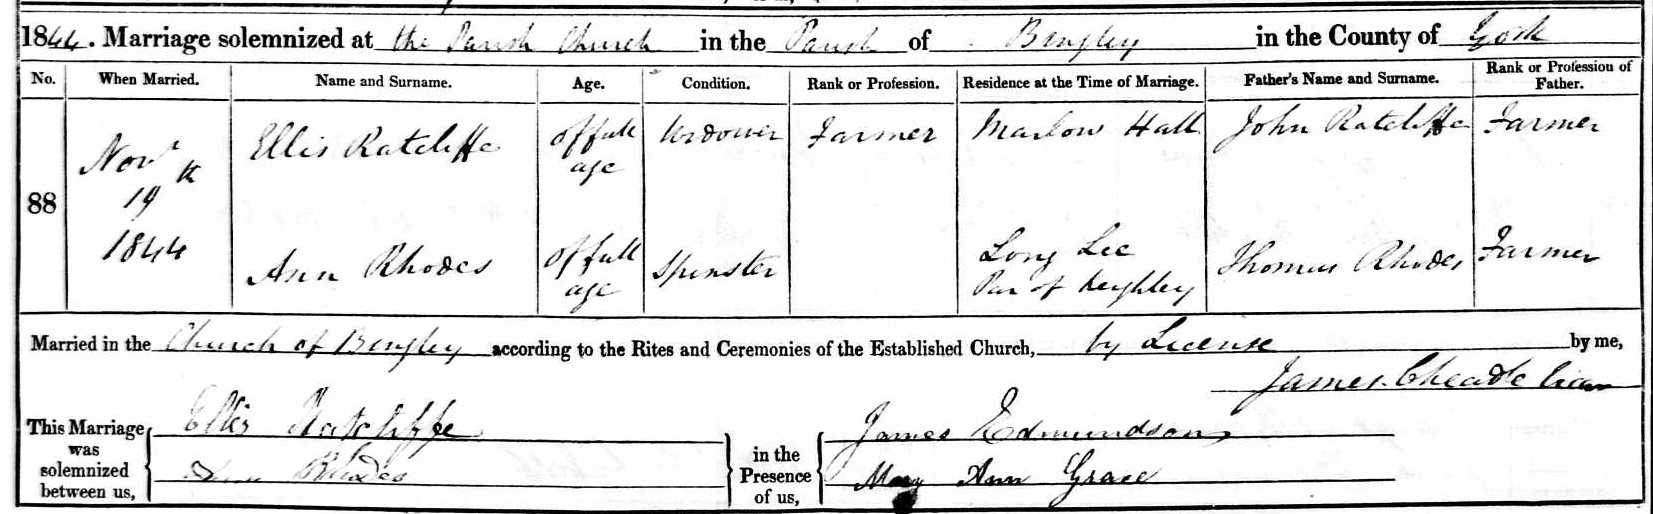 1844. Marriage solemnized at the Parish Church in the Parish of Bingley in the County of York
No. When Married. Name and Surname. Age. Condition. Rank or Profession. Residence at the Time of Marriage. Father's Name and Surname. Rank or Profession of Father.
88 Novr 19th 1844 Ellis Ratcliffe of full age Widower Farmer Marlow Hall John Ratcliffe Farmer
Ann Rhodes of full age Spinster Long Lee Par of Keighley Thomas Rhodes Farmer
Married in the Church of Bingley according to the Rites and Ceremonies of the Established Church, by License by me,
James Cheadle
This Marriage was solemnized between us, Ellis Ratcliffe in the Presence of us, James Edmundson
Ann Rhodes Mary Ann Grace